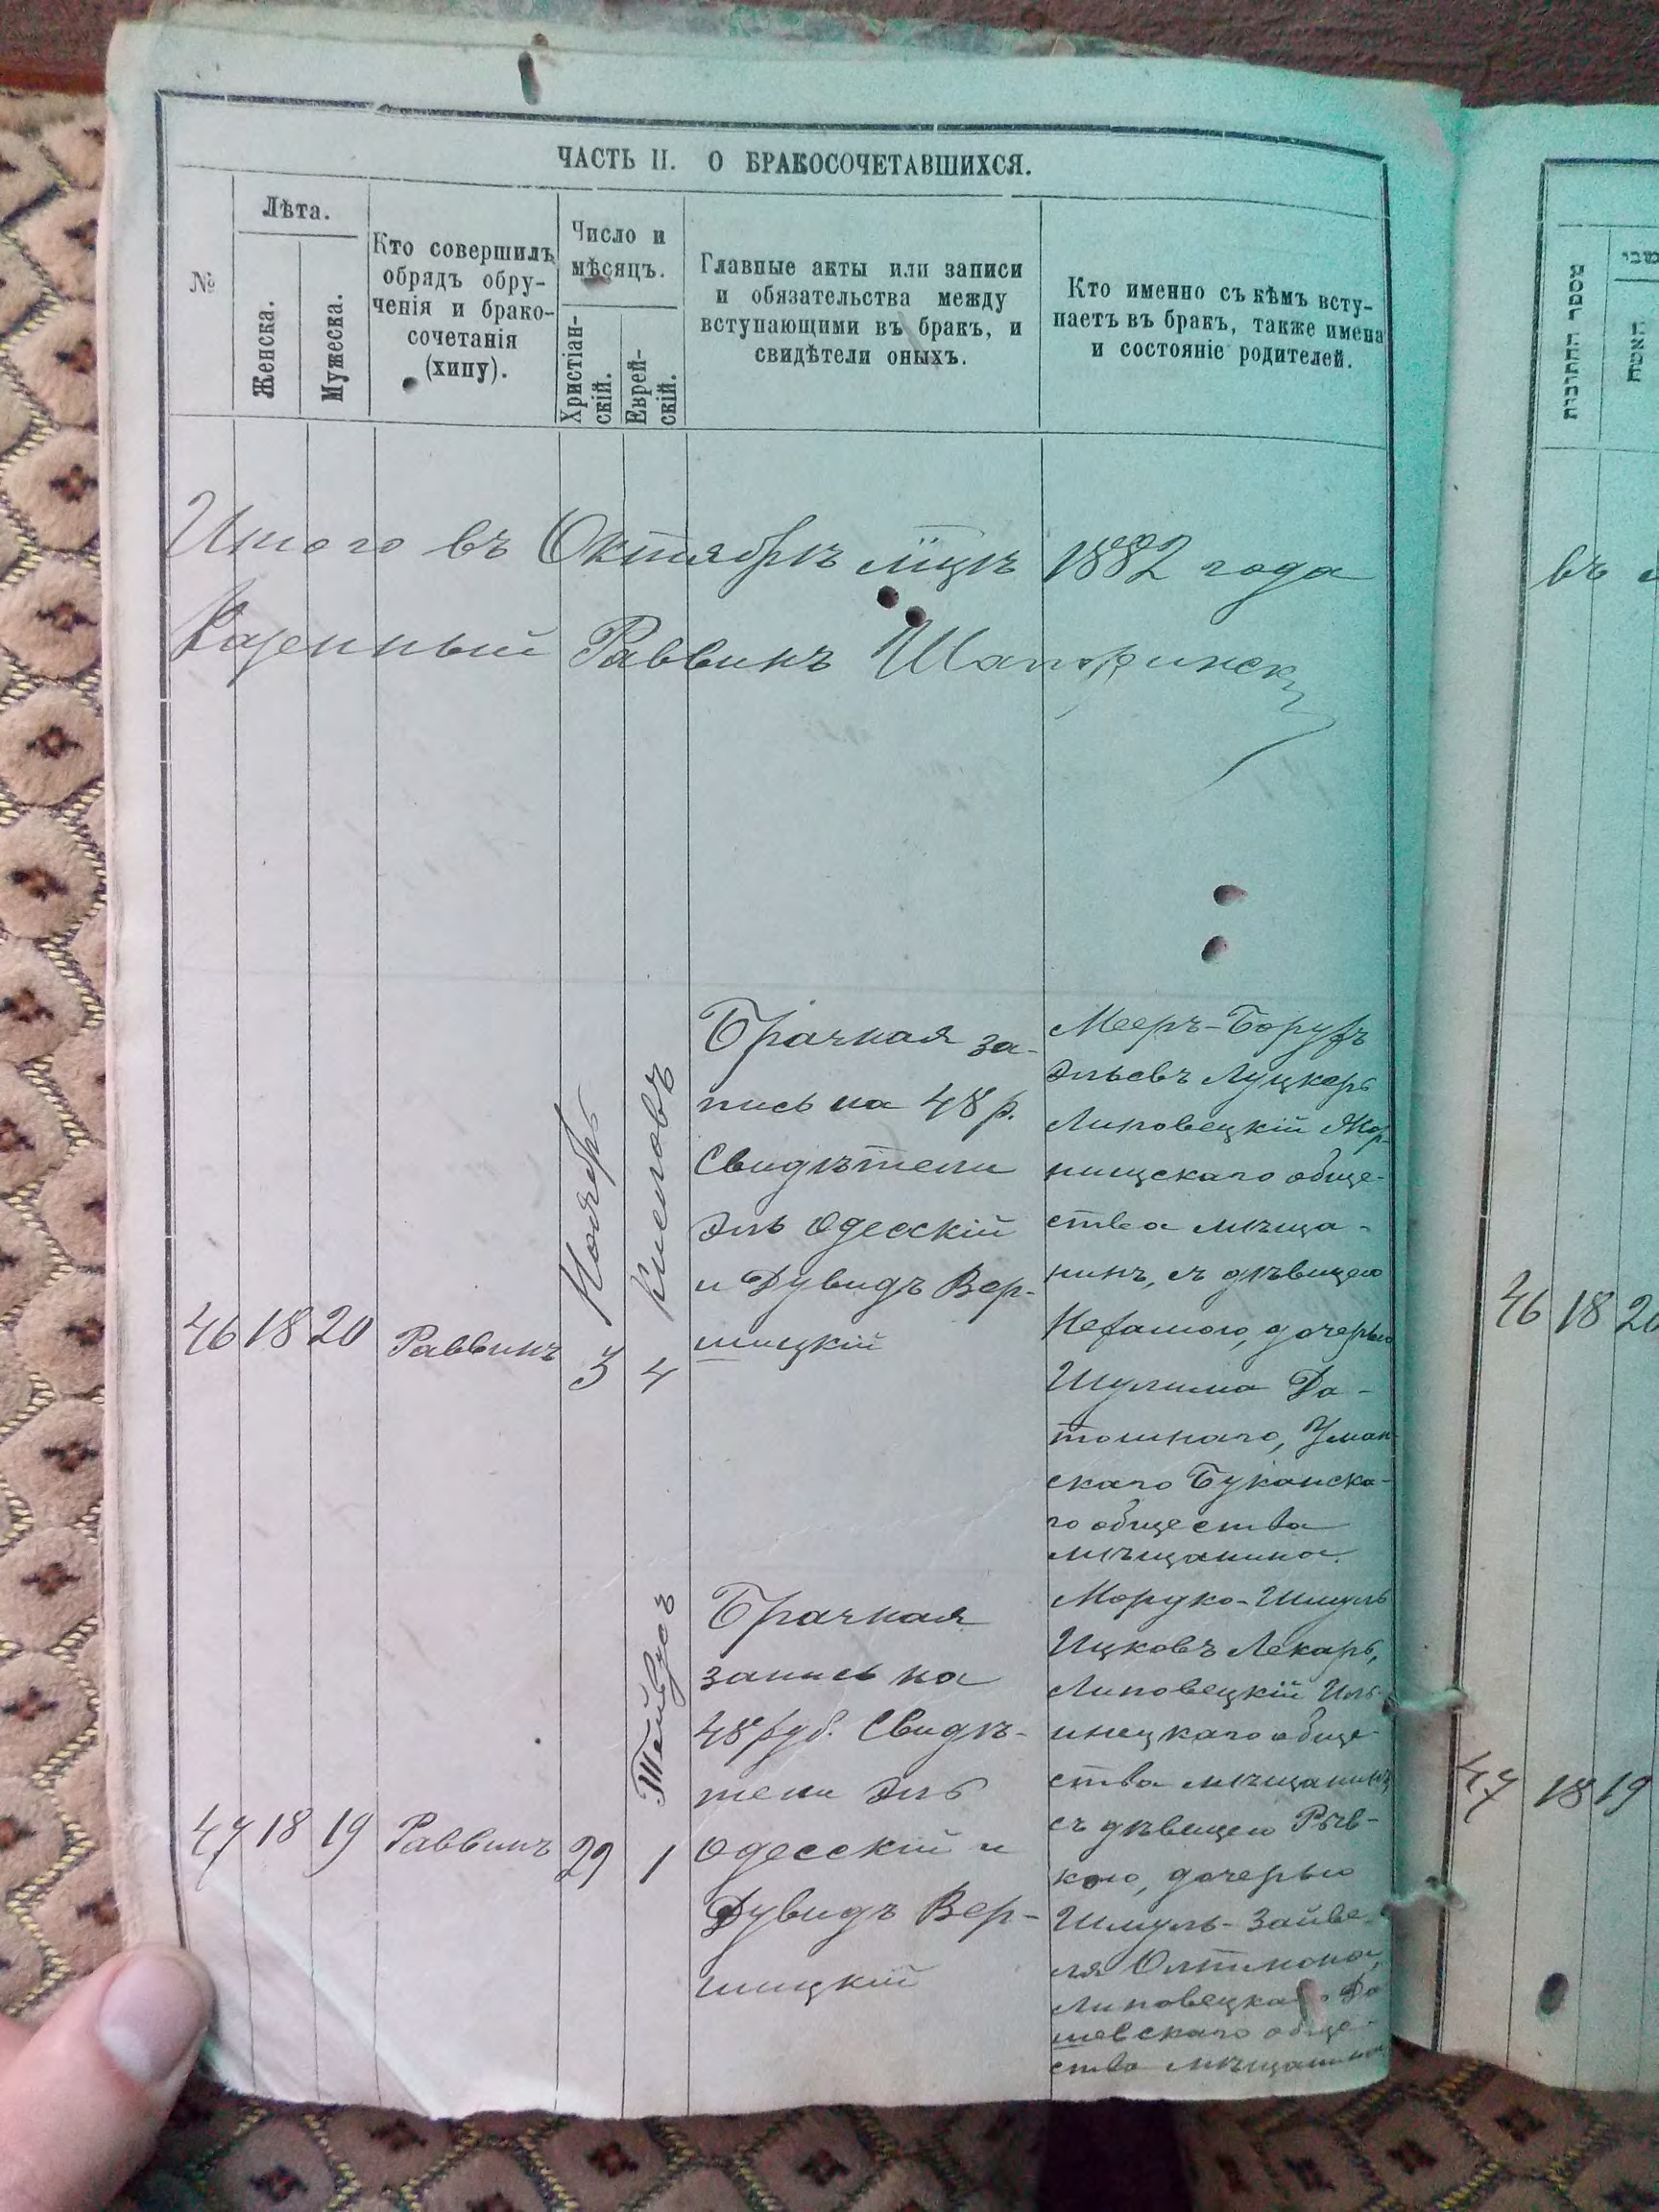 ЧАСТЬ II. О БРАКОСОЧЕТАВШИХСЯ.
№
Лѣта.
Женска.
Мужеска.
Кто совершилъ
обрядъ обру-
ченія и брако-
сочетанія
(хипу).
Число и
мѣсяцъ.
Христіан-
скій.
Еврей-
скій.
Главные акты или записи
и обязательства между
вступающими въ бракъ, и
свидѣтели оныхъ.
Кто именно съ кѣмъ всту-
паетъ въ бракъ, также имена
и состояніе родителей.
Итого въ Октябрѣ мцѣ 1882 года
Казенный Раввинъ
46 18 20 Раввинъ
Ноябрь
3
Кислевъ
4
Брачная за-
пись на 48 р.
Свидѣтели
Эль Одесскій
и Дувидъ Вер-
шицкій
Мееръ-Борухъ
Эльевъ Луцкеръ
Липовецкій Жор-
нищскаго обще-
ства мѣща-
нинъ, съ дѣвицею
Нехамою, дочерью
Шулима
Уман-
скаго
го общества
мѣщанина.
47 18 19 Раввинъ
29
Тейвусъ
1
Брачная
запись на
48 руб. Свидѣ-
тели Эль
Одесскій и
Дувидъ Вер-
шицкій
Мордко-Шмуль
Ицковъ Лекарь,
Липовецкій Иль-
инецкаго обще-
ства мѣщанинъ,
съ дѣвицею Рыв-
кою, дочерью
Шмуль-Зайве-
ля
Липовецкаго Да
шевскаго обще-
ства мѣщанина
מספר החתונות
האשה
въ
46 18 20
47 18 19